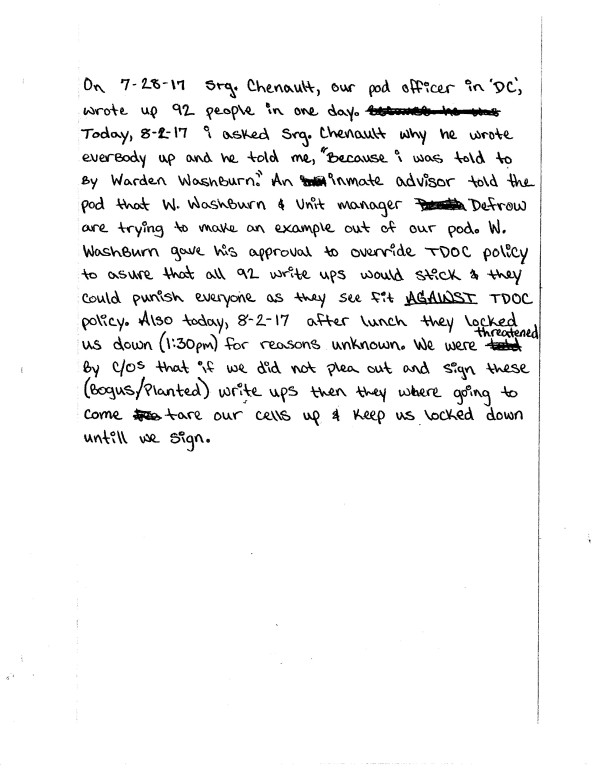 On 7-28-17 Srg. Chenault, our pod officer in 'DC',
wrote up 92 people in one day. because he was
Today, 8-2-17 i asked Srg. Chenault why he wrote
everbody up and he told me, "Because i was told to
By Warden Washburn." An inmate advisor told the
pod that W. Washburn & Unit manager Deffrow
are trying to make an example out of our pod. W.
Washburn gave his approval to override TDOC policy
to asure that all 92 write ups would stick & they
could punish everyone as they see fit AGAINST TDOC
policy. Also today, 8-2-17 after lunch they locked
us down (1:30pm) for reasons unknown. We were threatened
By C/Os that if we did not plea out and sign these
(Bogus/Planted) write ups then they where going to
come tare our cells up & keep us locked down
untill we sign.